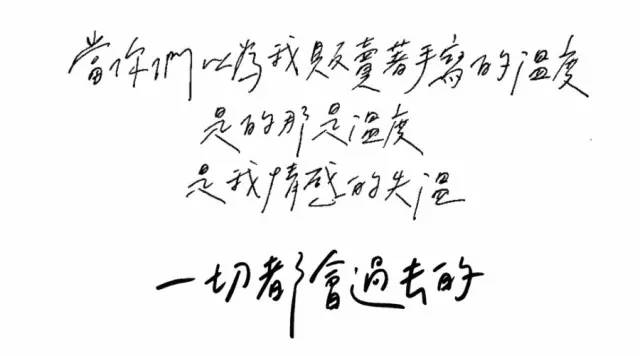 當你們以為我販賣著手寫的溫度
是的那是溫度
是我情感的失溫
一切都會過去的